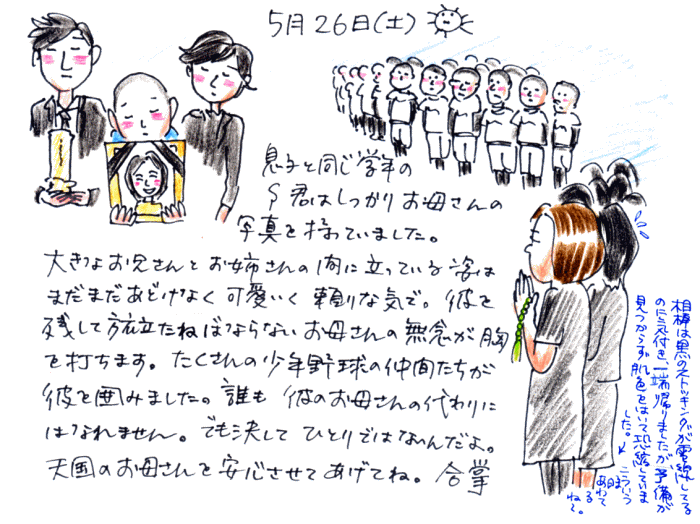 5月26日(土)
息子と同じ学年の
S君はしっかりお母さんの
写真を持っていました。
大きなお兄さんとお姉さんの間に立っている姿は
まだまだあどけなく可愛いく頼りな気で。彼を
残して旅立たねばならないお母さんの無念が胸
を打ちます。たくさんの少年野球の仲間たちが
彼を囲みました。誰も彼のお母さんの代わりに
はなれません。でも決してひとりではないんだよ。
天国のお母さんを安心させてあげてね。合掌
相棒は黒のストッキングが電線してる
のに気付き、一端帰りましたが予備が
見つからず肌色をはいて恐縮していま
した。
こういう
日は
あわて
るね。